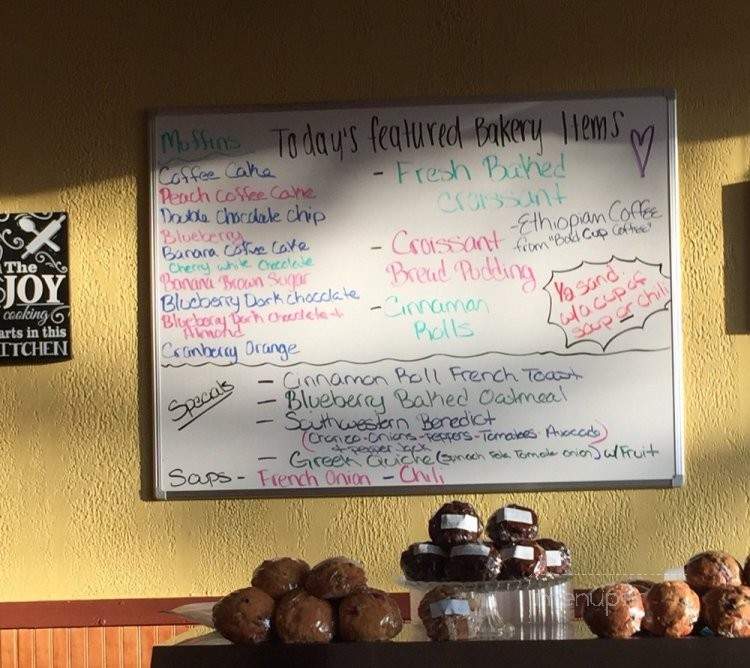 Today's featured Bakery Items
Muffins
Coffee Cake
Peach Coffee Cake
Double Chocolate Chip
Blueberry
Banana Coffee Cake
Cherry white Chocolate
Banana Brown Sugar
Blueberry Dark chocolate
Blueberry Dark chocolate +
Almond
Cranberry Orange
- Fresh Baked
Croissant
- Ethiopian Coffee
from "Bold Cup Coffee"
- Croissant
Bread Pudding
- Cinnamon
Rolls
1/2 sand.
w/a cup of
soup or chili
Specials
- Cinnamon Roll French Toast
- Blueberry Baked Oatmeal
- Southwestern Benedict
(Chorizo-Onions-Peppers-Tomatoes-Avocado)
+ Pepper Jack
- Greek Quiche (Spinach Feta Tomato onion) w/Fruit
Soups - French Onion - Chili
The
JOY
cooking
arts in this
ITCHEN
menupix